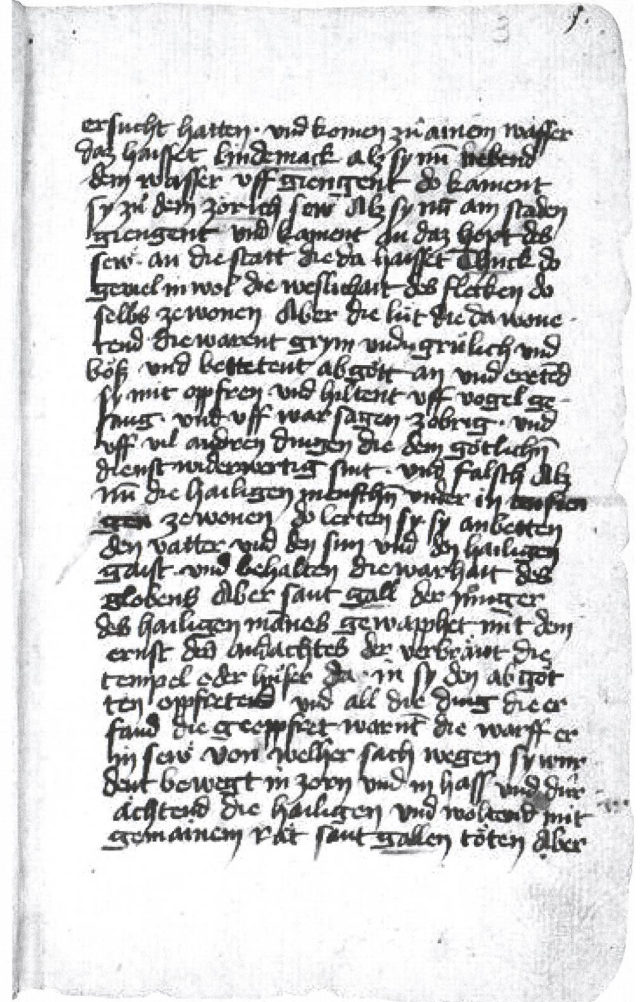 3 5.
ersucht hatten · vnd komen zů ainem wasser
daz haisset lindemack alz sy nun nebend
dem wasser vff giengent do kament
sy zů dem zörich sew Alz sy nun am staden
giengent vnd kament an daz hopt des
sew · an die statt die da haisset Thuck do
geviel in wol die weslichait des flecken do
selbs ze wonen Aber die lüt die da wone
tend die warent grym vnd grülich vnd
böß vnd bettetent abgött an vnd eretend
sy mit opfren vnd hiltent vff vogel ge-
sang · vnd vff war sagen zobrig · vnd
vff vil andren dingen die dem götlichen
dienst widerwertig sint · vnd falsch Alz
nun die hailigen menschen vnder in
ze wonen do lerten sy sy anbetten
den vatter vnd den sun vnd den hailigen
gaist · vnd behalten die warhait des
globens Aber sant gall der junger
des hailigen manes gewapphet mit dem
ernst des andachtes der verbrant die
tempel oder hüser da in sy den abgöt
ten oppfretend vnd all die ding die er
fand die geoppfret warent die warff er
in sew von welher sach wegen sy wur
dent bewegt in zorn vnd in hass vnd dur-
ächtend die hailigen vnd woltend mit
gemainem rät sant gallen töten Aber